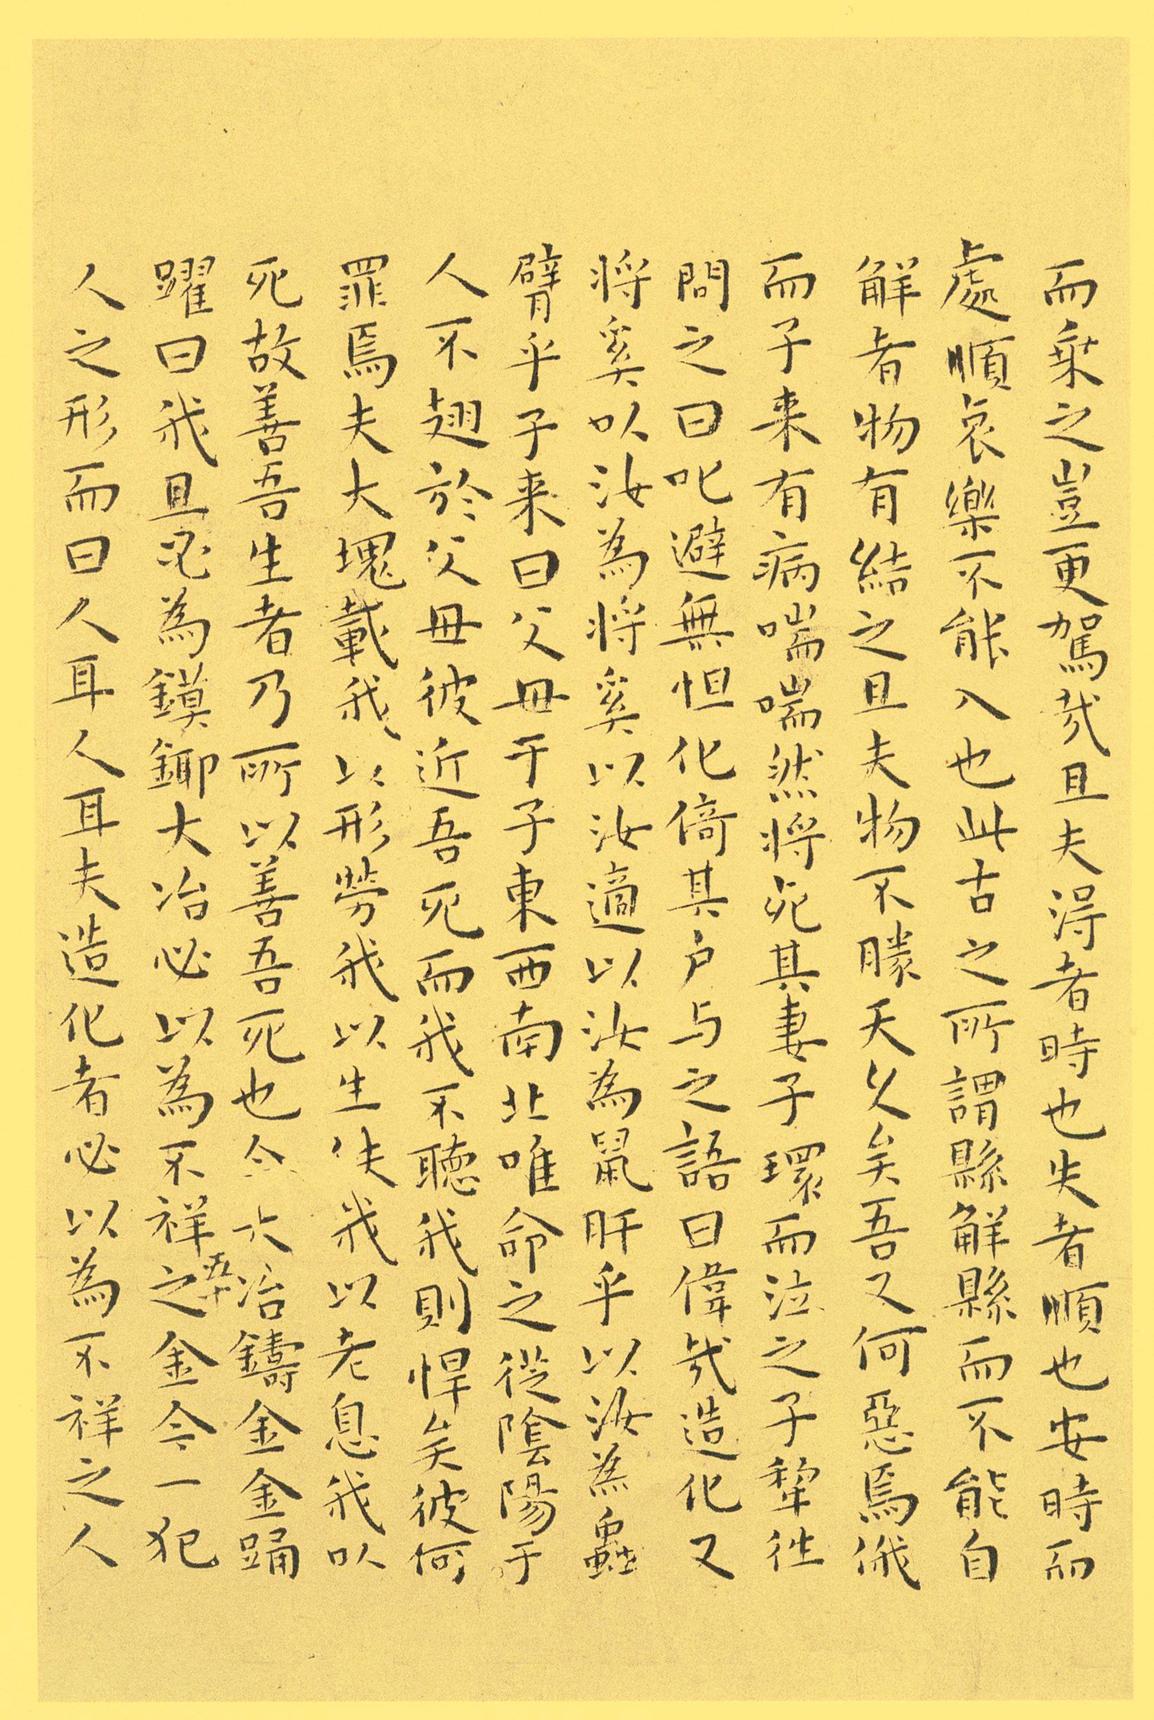 而乗之豈更駕哉且夫得者時也失者順也安時而
處順哀樂不能入也此古之所謂縣解縣而不能自
解者物有結之且夫物不勝天久矣吾又何惡焉俄
而子来有病喘喘然將死其妻子環而泣之子犂往
問之曰叱避無怛化倚其户与之語曰偉哉造化又
將奚以汝為將奚以汝適以汝為鼠肝乎以汝為蟲
臂乎子来曰父母于子東西南北唯命之從陰陽于
人不翅於父母彼近吾死而我不聽我則悍矣彼何
罪焉夫大塊載我以形勞我以生佚我以老息我以
死故善吾生者乃所以善吾死也今大冶鑄金金踊
躍曰我且必為鏌鎁大冶必以為不祥之金今一犯
人之形而曰人耳人耳夫造化者必以為不祥之人